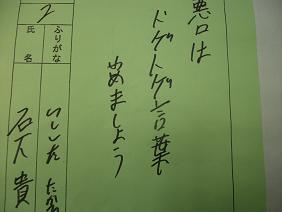 悪口は
トゲトゲ言葉
やめましょう
2
ふりがな
氏名
いしした たか
石下 貴